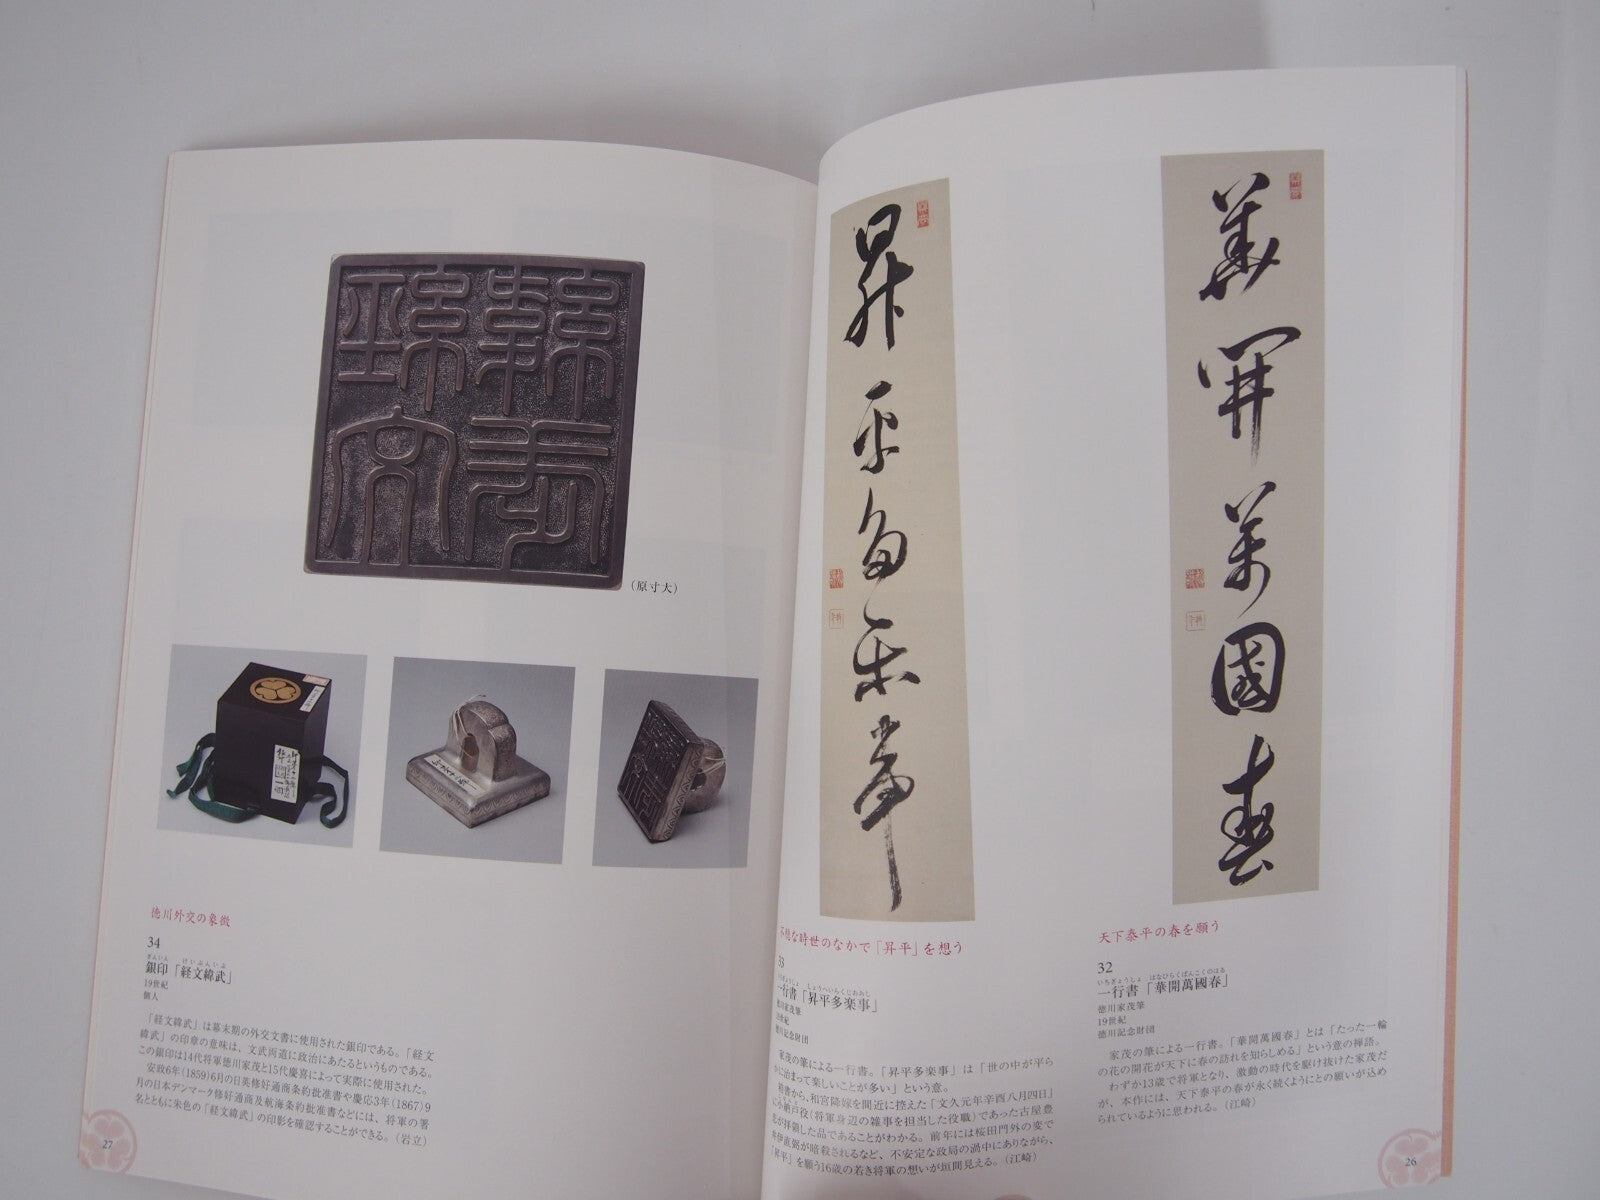 華開萬國春
天下泰平の春を願う
32
いちぎょうしょ はなひらくばんこくのはる
一行書「華開萬國春」
徳川家茂筆
19世紀
徳川記念財団
家茂の筆による一行書。「華開萬國春」とは「たった一輪
の花の開花が天下に春の訪れを知らしめる」という意の禅語。
わずか13歳で将軍となり、激動の時代を駆け抜けた家茂だ
が、本作には、天下泰平の春が永く続くようにとの願いが込め
られているように思われる。（江﨑）
26
昇平多楽事
な時世のなかで「昇平」を想う
33
しょうへいらくじおおし
一行書「昇平多楽事」
徳川家茂筆
19世紀
徳川記念財団
家茂の筆による一行書。「昇平多楽事」は「世の中が平ら
かに治まって楽しいことが多い」という意。
箱書から、和宮降嫁を間近に控えた「文久元年辛酉八月四日」
に小納戸役（将軍身辺の雑事を担当した役職）であった古屋豊
が拝領した品であることがわかる。前年には桜田門外の変で
井伊直弼が暗殺されるなど、不安定な政局の渦中にありながら、
「昇平」を願う16歳の若き将軍の想いが垣間見える。（江﨑）
（原寸大）
徳川外交の象徴
34
ぎんいん けいぶんいぶ
銀印「経文緯武」
19世紀
個人
「経文緯武」は幕末期の外交文書に使用された銀印である。「経文
緯武」の印章の意味は、文武両道に政治にあたるというものである。
この銀印は14代将軍徳川家茂と15代慶喜によって実際に使用された。
安政6年（1859）6月の日英修好通商条約批准書や慶応3年（1867）9
月の日本デンマーク修好通商及航海条約批准書などには、将軍の署
名とともに朱色の「経文緯武」の印影を確認することができる。（岩立）
27